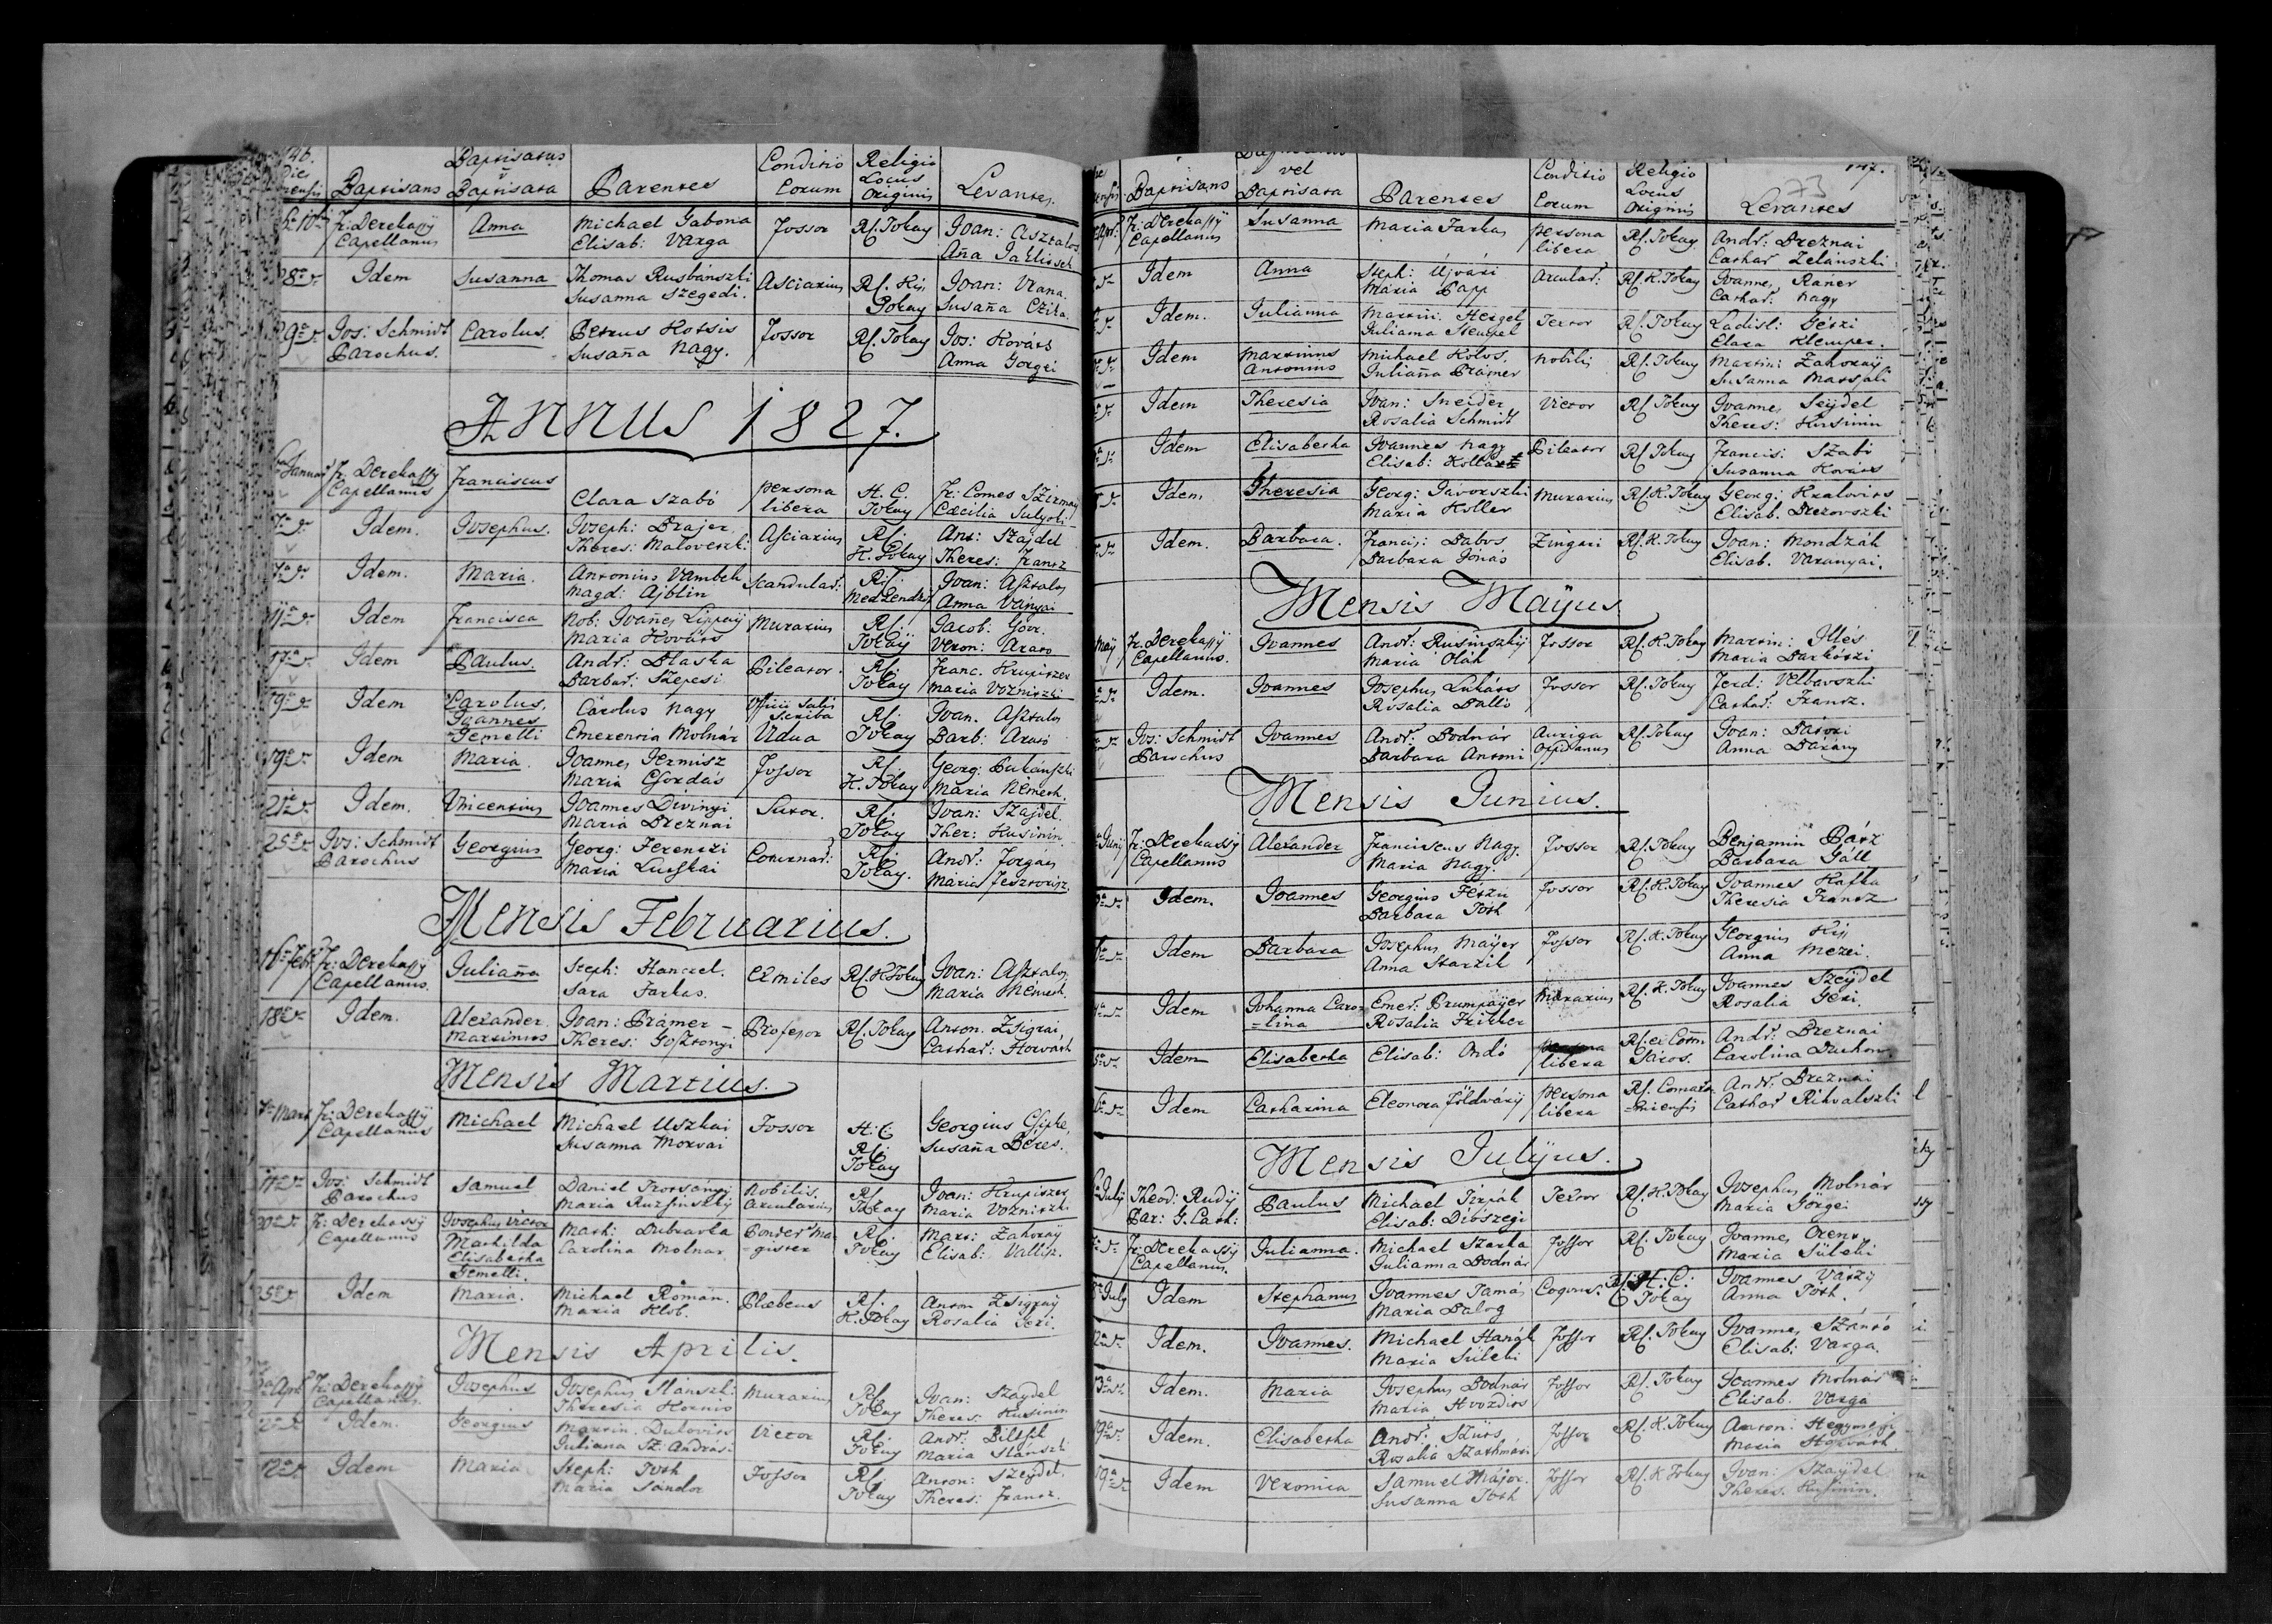 146.
Die Mensis | Baptisans | Baptisatus v Baptisata | Parentes | Conditio Eorum | Religio Locus Originis | Levantes
10br | Fr: Derekassy Capellanus | Anna | Michael Gabona Elisab: Varga | Fossor | Rf. Tokay | Joan: Asztalos Aña
28a d. | Idem | Susanna | Thomas Rusbánszki Susanna Szegedi. | Asciarius | Rf. Kis Tokay | Joan: Vrana. Susaña Czika.
29a d. | Jos: Schmidt Parochus. | Carolus. | Petrus Kotsis Susaña Nagy. | Fossor | Rf. Tokay | Jos: Kováts Anna Gorgei
ANNUS 1827.
Januar | Fr: Derekassy Capellanus | Franciscus | Clara Szabó | persona libera | H. C. Tokay | Fr: Comes Szirmay Cæcilia Sulyoki
7a d. | Idem. | Josephus. | Joseph: Drajer. Theres: Matoveszki | Asciarius | Rf. K. Tokay | Ant: Szajdel Theres: Frantz
7a d. | Idem. | Maria. | Antonius Vambek Magd: Ajblin | Scandular: | Rf. | Joan: Asztalos Anna Ványai
11a d. | Idem | Francisca | Nob: Joañes Lippay Maria Kováts | Murarius | Rf. Tokaÿ | Jacob: Govr. Veron: Arato
17a d. | Idem | Paulus. | Andr: Blaska Barbar: Szepesi | Pileator. | Rf. Tokay | Franc. Krupiszer Maria Vozniszki
19a d. | Idem | Carolus, Joannes Gemelli | Carolus Nagy Emerentia Molnár | Officii Salis Scriba Vidua | Rf. Tokay | Joan. Asztalos Barb: Arató
19a d. | Idem | Maria. | Joannes Germisz Maria Csordás | Fossor | Rf. K. Tokay | Georg: Bukánszki Maria Németh.
21a d. | Idem. | Vincentius | Joannes Divinyi Maria Breznai | Sutor. | Rf. Tokay | Joan: Szajdel. Ther: Kusinin
25a d. | Jos: Schmidt Parochus | Georgius | Georg: Ferentzi Maria Lutskai | Coturnar: | Rf. Tokay. | Andr: Forgács Maria
Mensis Februarius.
16a Febr | Fr: Derekassy Capellanus. | Juliaña | Steph: Hanczel. Sara Farkas. | Exmiles | Rf. K Tokay | Joan: Asztalos Maria Németh.
18a d. | Idem. | Alexander. Martinus | Joan: Prámer Theres: Gosztonyi | Professor | Rf. Tokay | Anton. Zsigrai, Cathar: Horváth
Mensis Martius.
Mart | Fr: Derekassy Capellanus | Michael | Michael Uszkai Susanna Morvai | Fossor | H. C. Rf. Tokay | Georgius Csipke, Susaña Béres.
11a d. | Jos: Schmidt Parochus | Samuel | Daniel Trotsányi Maria Ruzsinszky | Nobilis. Arcularius | Rf. Tokay | Joan: Krupiszer Maria Vozniszki
20a d. | Fr: Derekassy Capellanus | Josephus Victor Mathilda Elisabetha Gemelli. | Math: Dubravka Carolina Molnar | Ponder Ma-gister | Rf. Tokay | Mart: Zahoray Elisab: Vallisz.
25a d. | Idem | Maria. | Michael Román. Maria Klob. | Plebeus | Rf. K. Tokay | Anton Zsigray Rosalia Geri.
Mensis Aprilis.
Apr | Fr: Derekassy Capellanus. | Josephus | Josephus Stánszki Theresia Hornis | Murarius | Rf. Tokay | Joan: Szaydel Theres: Kusinin
d. | Idem. | Georgius | Martin. Dulovits Juliana Sz: András | Vietor | Rf. Tokay | Andr: Maria Stánszki
12a d. | Idem | Maria | Steph: Toth Maria Sándor | Fossor | Rf. Tokay | Anton: Szeÿdel. Theres: Frantz.
147.
73
Baptisans | vel Baptisata | Parentes | Conditio Eorum | Religio Locus Originis | Levantes
Apr: | Fr: Derekassy Capellanus | Susanna | Maria Farkas | persona libera | Rf. Tokay | Andr: Breznai Cathar Zelánszki
d. | Idem | Anna | Steph: Újvári Maria Papp | Arcular: | Rf. K. Tokay | Joannes Ráner Cathar: Nagy
d. | Idem. | Julianna | Martin: Hergel Julianna Stempel | Textor | Rf. Tokay | Ladisl: Gétzi Clara Klemper.
d. | Idem | Martinus Antonius | Michael Kolos. Juliaña Prámer | Nobilis | Rf. Tokay | Martin: Zahoraÿ Susanna Matsali
d. | Idem | Theresia | Joan: Sneider Rosalia Schmidt | Victor | Rf Tokay | Joannes Seÿdel Theres: Kusinin
d. | Idem | Elisabetha | Joannes Nagy Elisab: Kollar | Pileator | Rf. Tokay | Francis: Szabó Susanna Kováts
d. | Idem | Theresia | Georg: Jávorszki Maria Holler | Murarius | Rf. K. Tokay | Georg: Kralovits Elisab. Brezovszki
d. | Idem. | Barbara. | Francis: Babos Barbara Jónás | Zingari | Rf. K. Tokay | Joan: Mondzák Elisab. Varanyai.
Mensis Maÿus
Maÿ | Fr. Derekassÿ Capellanus. | Joannes | Andr: Rusinszkÿ Maria Oláh | Fossor | Rf. K. Tokay | Martin: Illés Maria Barkótzi
d. | Idem. | Joannes | Josephus Lukáts Rosalia Balló | Fossor | Rf. Tokay | Ferd: Velbavszki Cathar: Frantz.
d. | Jos: Schmidt Parochus | Joannes | Andr: Bodnár Barbara Antoni | Auriga Oppidanus | Rf Tokay | Joan: Bátori Anna Barány
Mensis Junius.
Junÿ | Fr: Derekassy Capellanus | Alexander | Franciscus Nagy. Maria Nagy. | Fossor | Rf. Tokay | Benjamin Bárz Barbara Gáll
d. | Idem. | Joannes | Georgius Petzi Barbara Tóth | Fossor | Rf. K. Tokay | Joannes Kafka Theresia Frantz
d. | Idem | Barbara | Josephus Maÿer Anna Starzik | Fossor | Rf. K. Tokay | Georgius Kiss Anna Mezei.
d. | Idem | Johanna Caro-lina | Emer: Prumpaÿer Rosalia Frikker | Murarius | Rf. K. Tokay | Joannes Szeÿdel Rosalia Geri.
d. | Idem | Elisabetha | Elisab: Ondó | persona libera | Rf. ex Com̃ Sáros. | Andr: Breznai Carolina Duchon.
d. | Idem | Catharina | Eleonora Földvárÿ | persona libera | Rf. Comaro-miensis | Andr: Breznai Cathar Rihvalszki
Mensis Julÿus.
Julÿ | Theod: Rudÿ Par: G. Cath: | Paulus | Michael Tirpák Elisab: Diószegi | Textor | Rf. K. Tokay | Josephus Molnár Maria Görgei
d. | Fr: Derekassÿ Capellanus. | Julianna. | Michael Szarka Julianna Bodnár | Fossor | Rf. Tokay | Joannes Orenz. Maria Süleki
July | Idem | Stephanus | Joannes Tamás Maria Balog | Coqvus. | Rf. H. C. Tokay | Joannes Vátzy Anna Tóth.
12a d. | Idem. | Joannes. | Michael Hanák Maria Süleki | Fossor | Rf. Tokay | Joannes Szántó Elisab: Varga.
13a d. | Idem. | Maria | Josephus Bodnár Maria Hvozdits | Fossor | Rf. Tokay | Joannes Molnár Elisab. Varga
19a d. | Idem. | Elisabetha | Andr: Szűts Rosalia Szathmári | Fossor | Rf. K. Tokay | Anton: Hegymegi Maria Horváth
19a d. | Idem | Veronica | Samuel Májor. Susanna Tóth | Fossor | Rf. K Tokay | Joan: Szaÿdel Theres. Kusinin.